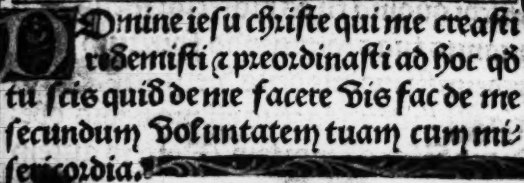 DOmine iesu christe qui me creasti
redemisti ⁊ preordinasti ad hoc qd̄
tu scis quid de me facere vis fac de me
secundum voluntatem tuam cum mi-
sericordia.